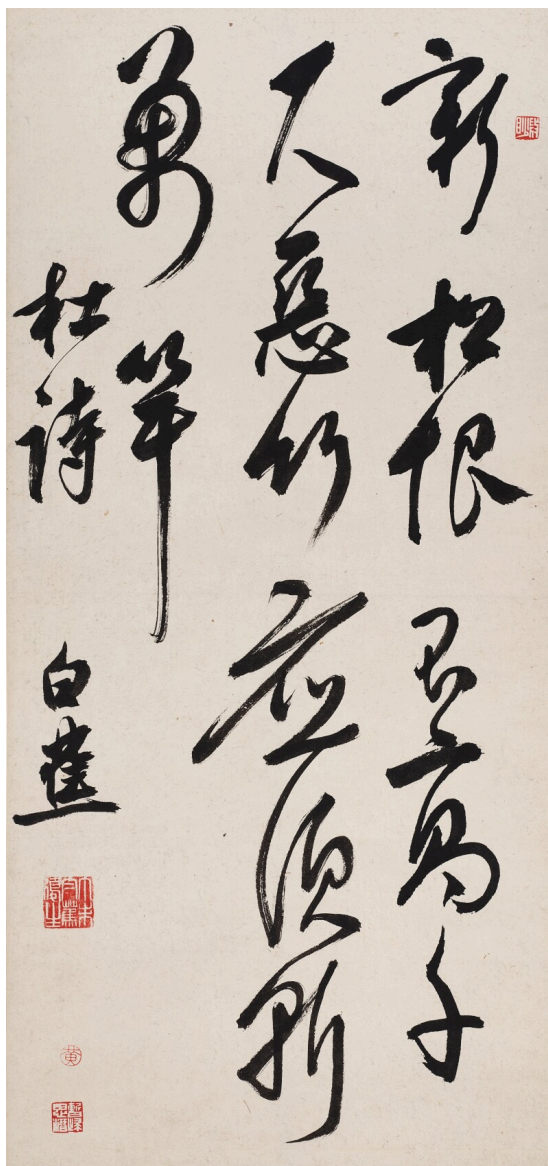 新松恨不高千
尺惡竹應須斬
萬竿
杜詩
白蕉
黃